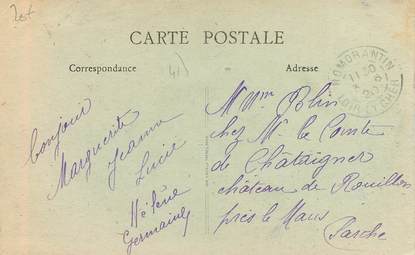 CARTE POSTALE
Correspondance
Adresse
ROMORANTIN
LOIR-ET-CHER
bonjour
Marguerite
Jeanne
Lucie
Hélène
Germaine
Mme Polin
chez Mr le Comte
de Chataigner
château de Rouillon
près le Mans
Sarthe